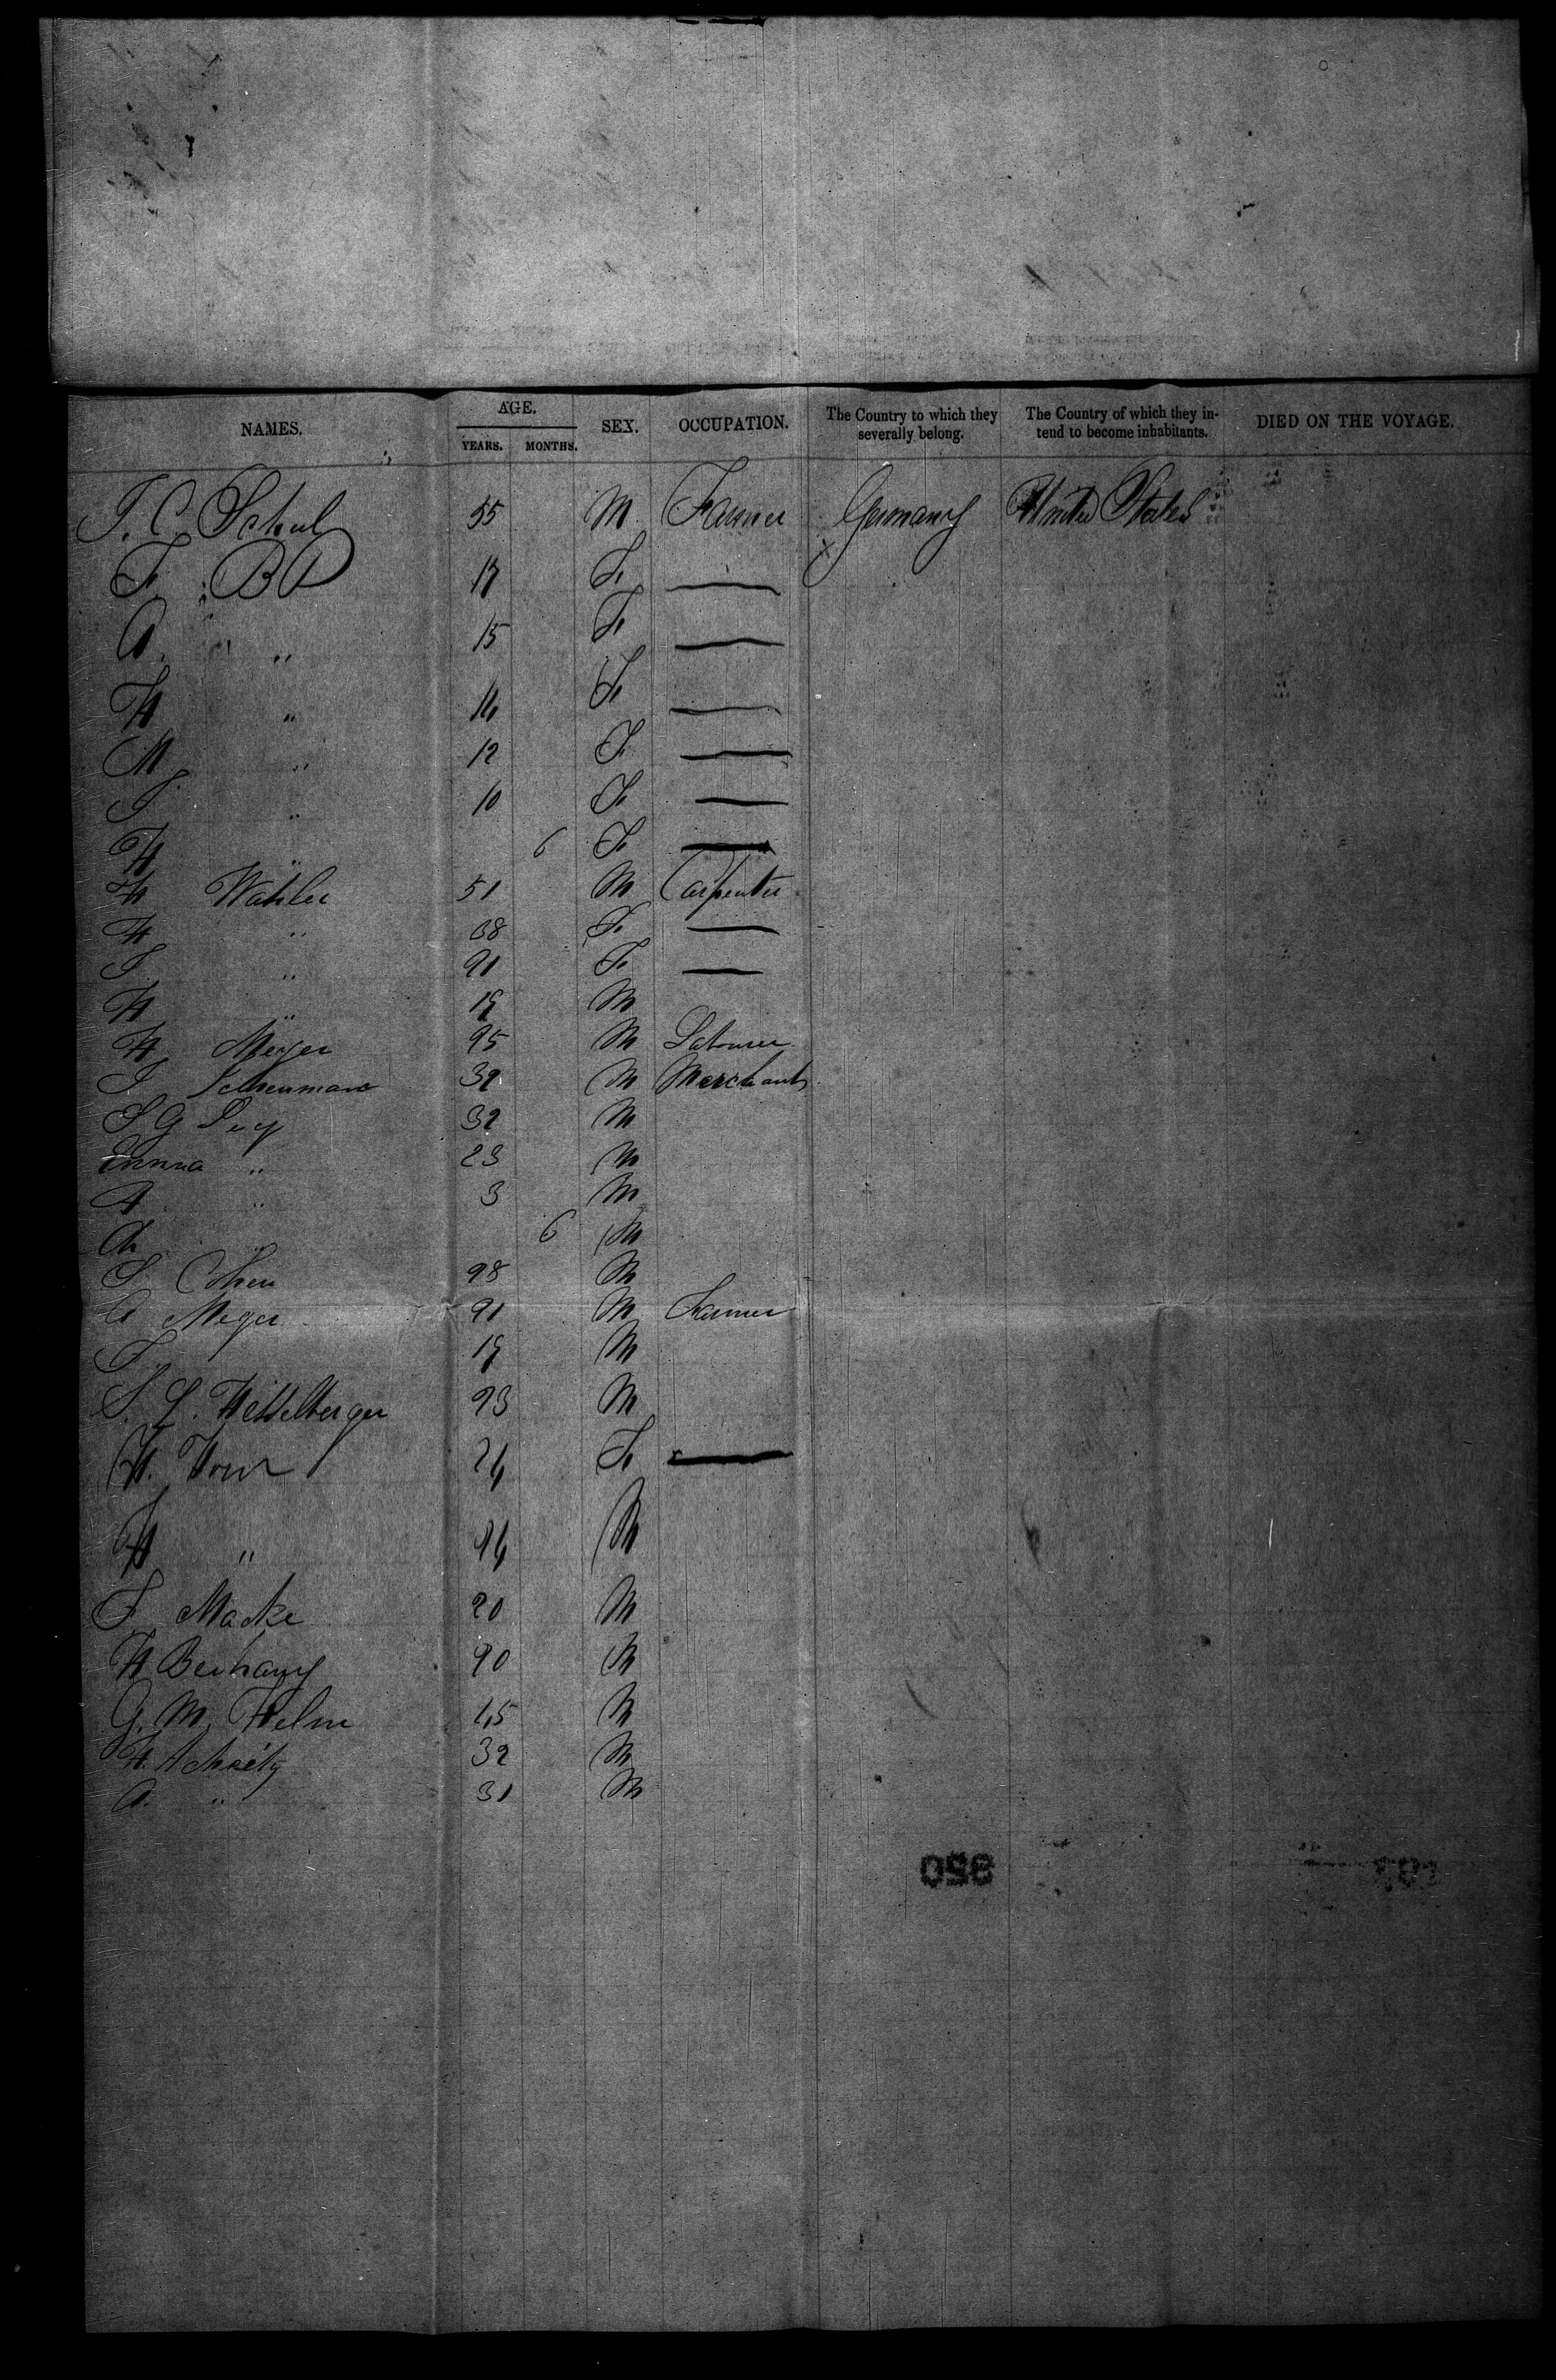 NAMES. AGE. YEARS. MONTHS. SEX. OCCUPATION. The Country to which they severally belong. The Country of which they intend to become inhabitants. DIED ON THE VOYAGE.
J. C. Schul 55 M Farmer Germany United States
F. 17 F.
A. " 15 F.
H " 14 F.
M " 12 F.
J. " 10 F.
H " 6 F.
H Wahler 51 M Carpenter
H " 38 F.
J. " 21 F.
H " 19 M
H Meyer 25 M Labourer
J 32 M Merchant
S G 32 M
Emma " 23 M
A " 3 M
" 6 M
S Cohen 28 M
A Meyer 21 M Farmer
F. " 19 M
S. L. Hesselberger 23 M
H. 24 F.
H " 14 M
F Macke 20 M
H 20 M
G. M. Helm 45 M
H. 32 M
A. " 31 M
350